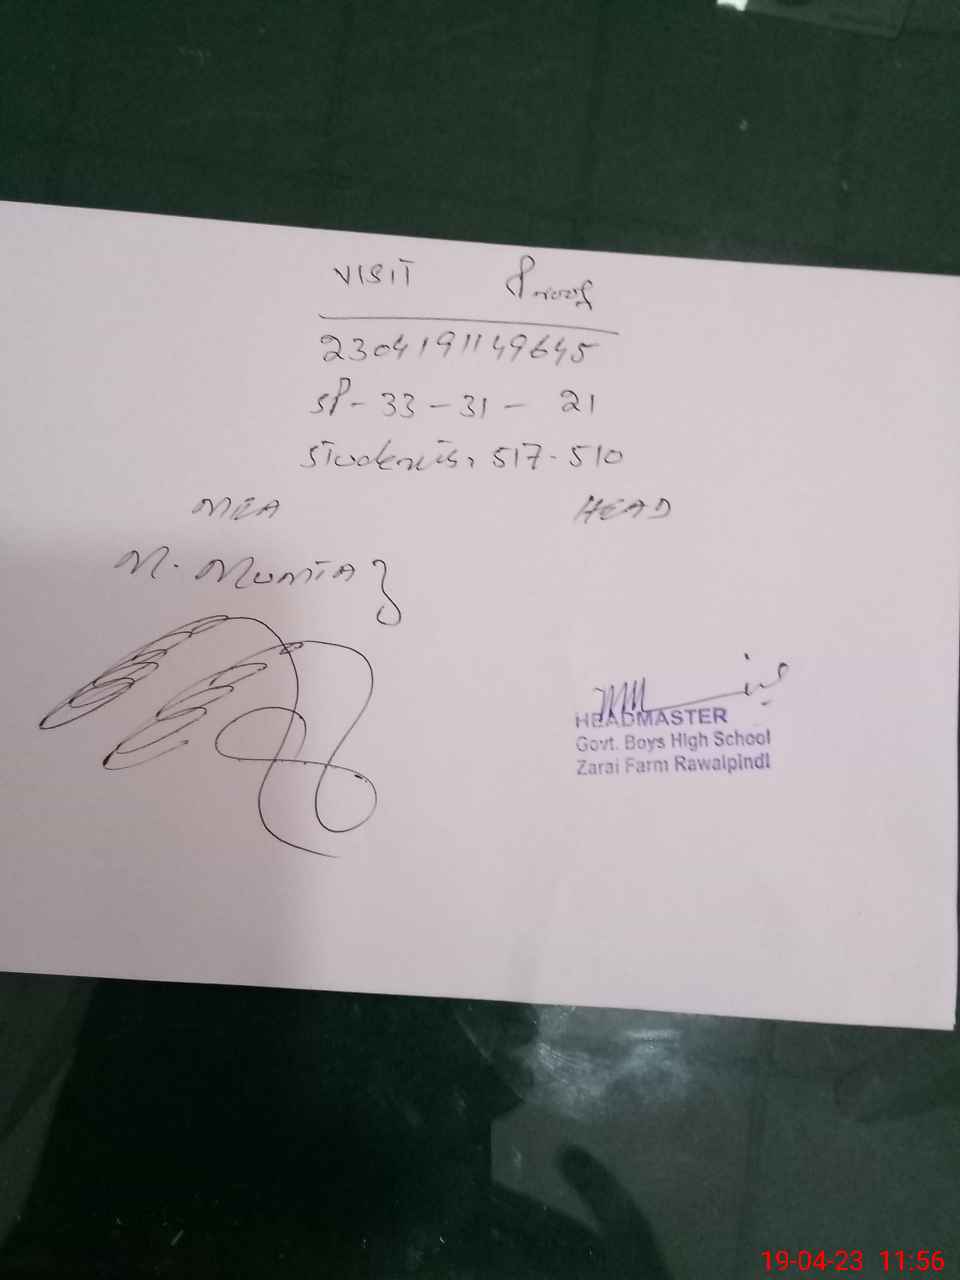 VISIT Proof
2304191149645
SP-33-31-21
Students, 517-510
MEA HEAD
M. Mumtaz
HEADMASTER
Govt. Boys High School
Zarai Farm Rawalpindi
19-04-23 11:56